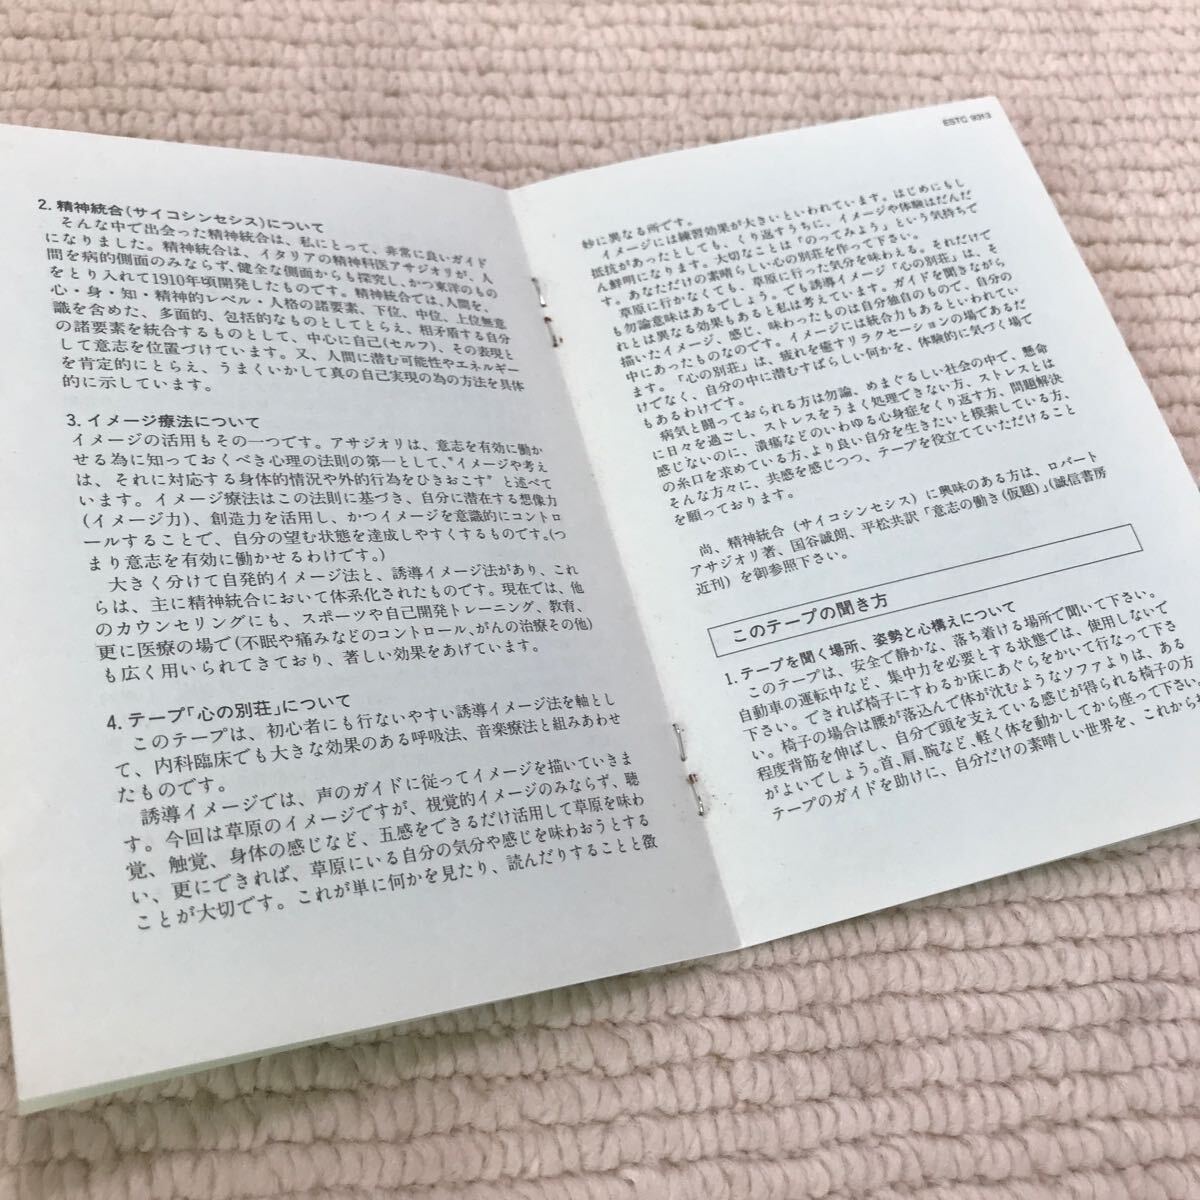 2. 精神統合(サイコシンセシス)について
そんな中で出会った精神統合は、私にとって、非常に良いガイド
になりました。精神統合は、イタリアの精神科医アサジオリが、人
間を病的側面のみならず、健全な側面からも探究し、かつ東洋のもの
をとり入れて1910年頃開発したものです。精神統合では、人間を、
心・身・知・精神的レベル・人格の諸要素、下位、中位、上位無意
識を含めた、多面的、包括的なものとしてとらえ、相矛盾する自分
の諸要素を統合するものとして、中心に自己(セルフ)、その表現と
して意志を位置づけています。又、人間に潜む可能性やエネルギー
を肯定的にとらえ、うまくいかして真の自己実現の為の方法を具体
的に示しています。
3. イメージ療法について
イメージの活用もその一つです。アサジオリは、意志を有効に働か
せる為に知っておくべき心理の法則の第一として、"イメージや考え
は、それに対応する身体的情況や外的行為をひきおこす"と述べて
います。イメージ療法はこの法則に基づき、自分に潜在する想像力
(イメージ力)、創造力を活用し、かつイメージを意識的にコントロ
ールすることで、自分の望む状態を達成しやすくするものです。(つ
まり意志を有効に働かせるわけです。)
大きく分けて自発的イメージ法と、誘導イメージ法があり、これ
らは、主に精神統合において体系化されたものです。現在では、他
のカウンセリングにも、スポーツや自己開発トレーニング、教育、
更に医療の場で(不眠や痛みなどのコントロール、がんの治療その他)
も広く用いられてきており、著しい効果をあげています。
4. テープ「心の別荘」について
このテープは、初心者にも行ないやすい誘導イメージ法を軸とし
て、内科臨床でも大きな効果のある呼吸法、音楽療法と組みあわせ
たものです。
誘導イメージでは、声のガイドに従ってイメージを描いていきま
す。今回は草原のイメージですが、視覚的イメージのみならず、聴
覚、触覚、身体の感じなど、五感をできるだけ活用して草原を味わ
い、更にできれば、草原にいる自分の気分や感じを味わおうとする
ことが大切です。これが単に何かを見たり、読んだりすることと微
ESTC 9313
妙に異なる所です。
イメージには練習効果が大きいといわれています。はじめにもし
抵抗があったとしても、くり返すうちに、イメージや体験はだんだ
ん鮮明になります。大切なことは「のってみよう」という気持ちで
す。あなただけの素晴らしい心の別荘を作って下さい。
草原に行かなくても、草原に行った気分を味わえる。それだけで
も勿論意味はあるでしょう。でも誘導イメージ「心の別荘」は、そ
れとは異なる効果もあると私は考えています。ガイドを聞きながら
描いたイメージ、感じ、味わったものは自分独自のもので、自分の
中にあったものなのです。イメージには統合力もあるといわれてい
ます。「心の別荘」は、疲れを癒すリラクセーションの場であるだ
けでなく、自分の中に潜むすばらしい何かを、体験的に気づく場で
もあるわけです。
病気と闘っておられる方は勿論、めまぐるしい社会の中で、懸命
に日々を過ごし、ストレスをうまく処理できない方、ストレスとは
感じないのに、潰瘍などのいわゆる心身症をくり返す方、問題解決
の糸口を求めている方、より良い自分を生きたいと模索している方、
そんな方々に、共感を感じつつ、テープを役立てていただけること
を願っております。
尚、精神統合(サイコシンセシス)に興味のある方は、ロバート
アサジオリ著、国谷誠朗、平松共訳「意志の働き(仮題)」(誠信書房
近刊)を御参照下さい。
このテープの聞き方
1. テープを聞く場所、姿勢と心構えについて
このテープは、安全で静かな、落ち着ける場所で聞いて下さい。
自動車の運転中など、集中力を必要とする状態では、使用しないで
下さい。できれば椅子にすわるか床にあぐらをかいて行なって下さ
い。椅子の場合は腰が落込んで体が沈むようなソファよりは、ある
程度背筋を伸ばし、自分で頭を支えている感じが得られる椅子の方
がよいでしょう。首、肩、腕など、軽く体を動かしてから座って下さい。
テープのガイドを助けに、自分だけの素晴しい世界を、これから